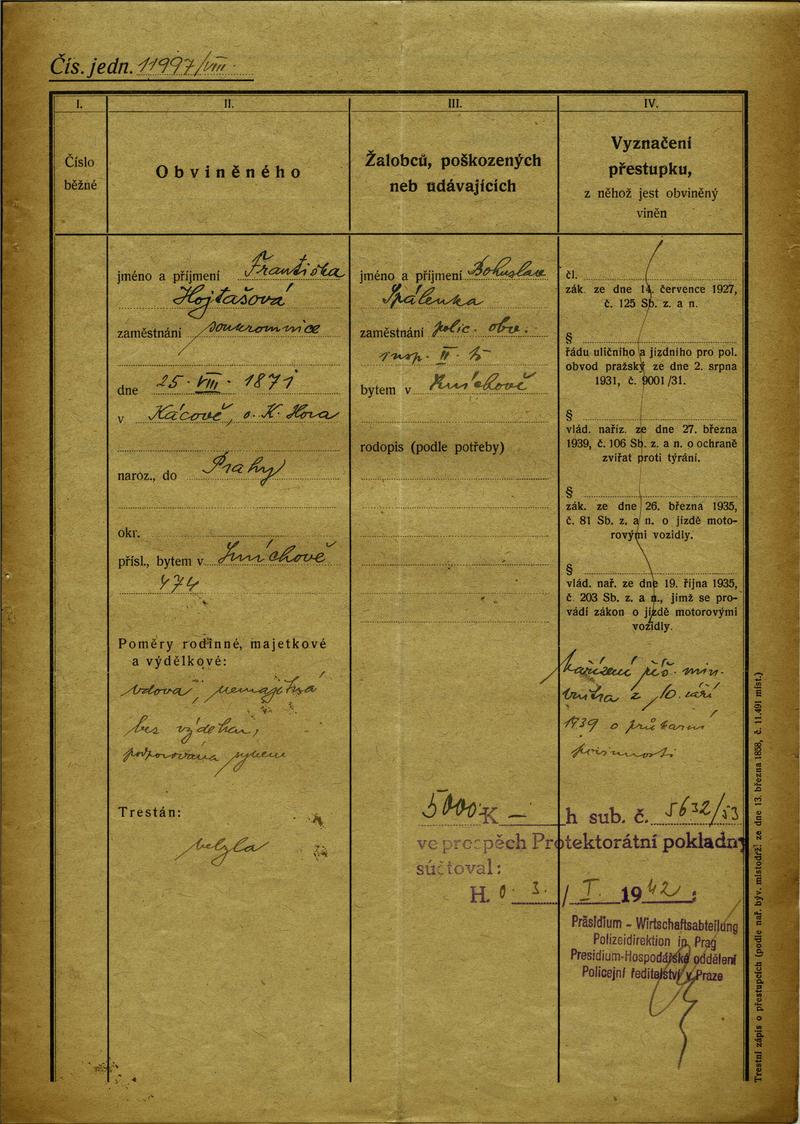 Čís. jedn. 11997/VIII.
I.
Číslo
běžné
II.
Obviněného
III.
Žalobců, poškozených
neb udávajících
IV.
Vyznačení
přestupku,
z něhož jest obviněný
viněn
jméno a příjmení Františka
Hojtašová
zaměstnání soukromnice
dne 25. VIII. 1871
v Kácově, o. K. Hora
naroz., do Prahy
okr.
přísl., bytem v Smíchově
474
Poměry rodinné, majetkové
a výdělkové:
vdova, nemajetná
bez výdělku,
podporována synem
Trestán:
nebyla
jméno a příjmení Bohuslav
Spálenka
zaměstnání polic. obv.
insp. II. tř.
bytem v Smíchově
rodopis (podle potřeby)
čl.
zák. ze dne 14. července 1927,
č. 125 Sb. z. a n.
§
řádu uličního a jízdního pro pol.
obvod pražský ze dne 2. srpna
1931, č. 9001/31.
§
vlád. naříz. ze dne 27. března
1939, č. 106 Sb. z. a n. o ochraně
zvířat proti týrání.
§
zák. ze dne 26. března 1935,
č. 81 Sb. z. a n. o jízdě moto-
rovými vozidly.
§
vlád. nař. ze dne 19. října 1935,
č. 203 Sb. z. a n., jímž se pro-
vádí zákon o jízdě motorovými
vozidly.
Nařízení min.
vnitra z 10. září
1939 o průkazní
povinnosti
5000 K — h sub. č. 5632/53
ve prospěch Protektorátní pokladny
súčtoval:
H. 0 3. / I. 1942 :
Präsidium - Wirtschaftsabteilung
Polizeidirektion in Prag
Presidium-Hospodářské oddělení
Policejní ředitelství v Praze
Trestní zápis o přestupcích (podle nař. býv. místodrž. ze dne 13. března 1858, č. 11.491 míst.)